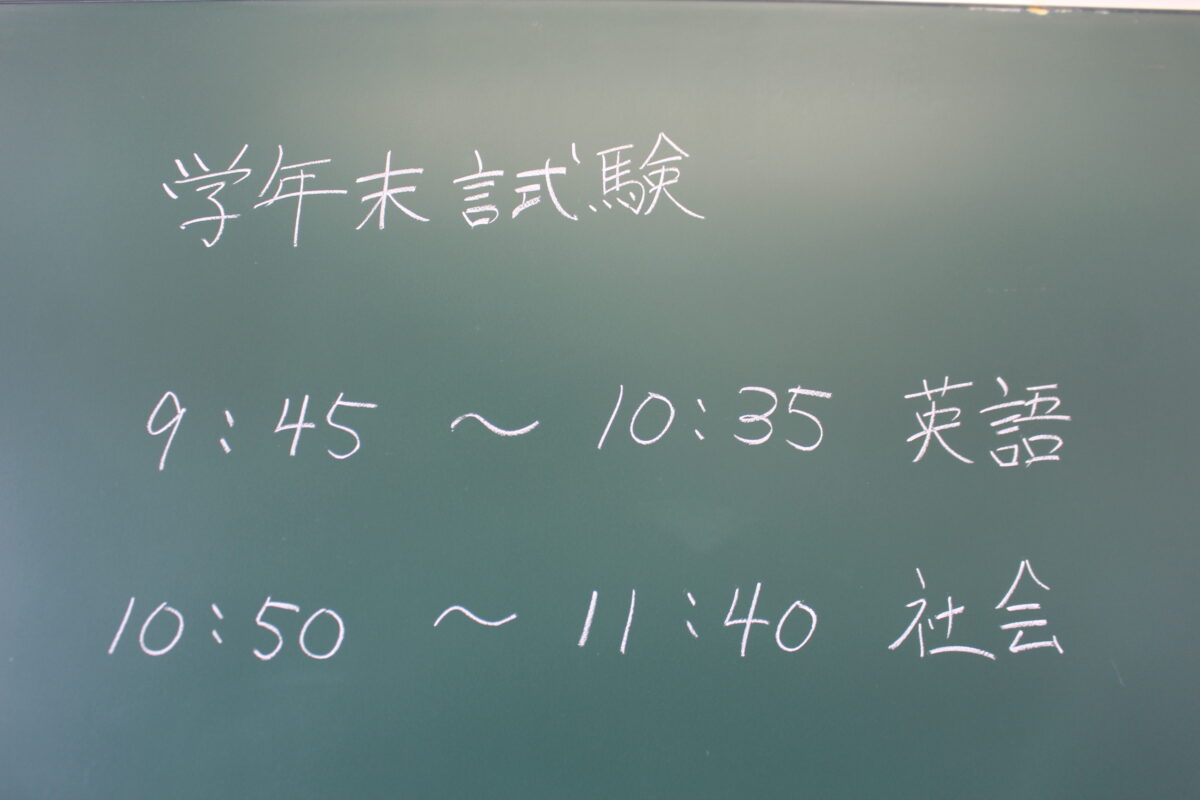 学年末試験
9:45 〜 10:35 英語
10:50 〜 11:40 社会